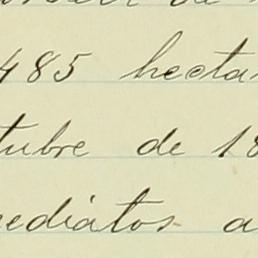 485 hecta
tubre de 18
ediatos a